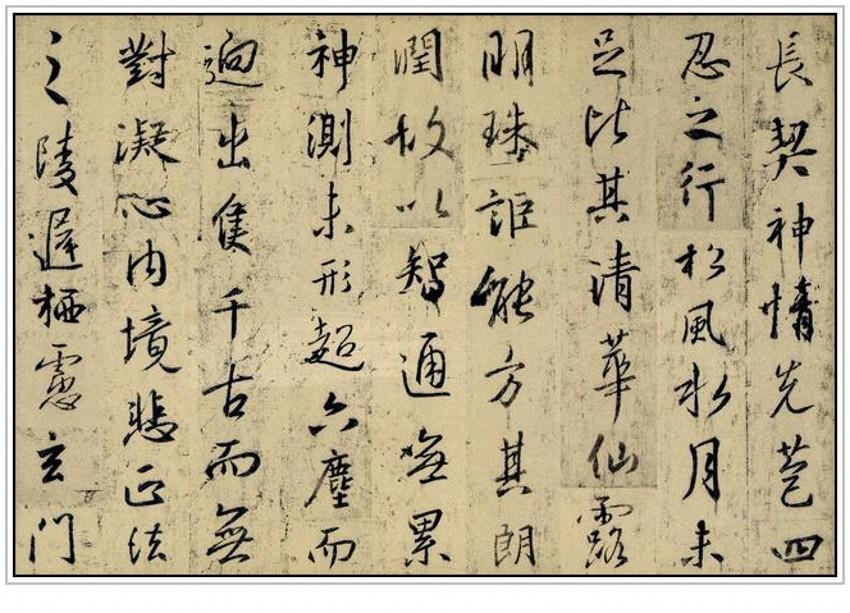 長契神情先苞四
忍之行松風水月未
足比其清華仙露
明珠詎能方其朗
潤故以智通無累
神測未形超六塵而
逈出隻千古而無
對凝心内境悲正法
之陵遲栖慮玄門